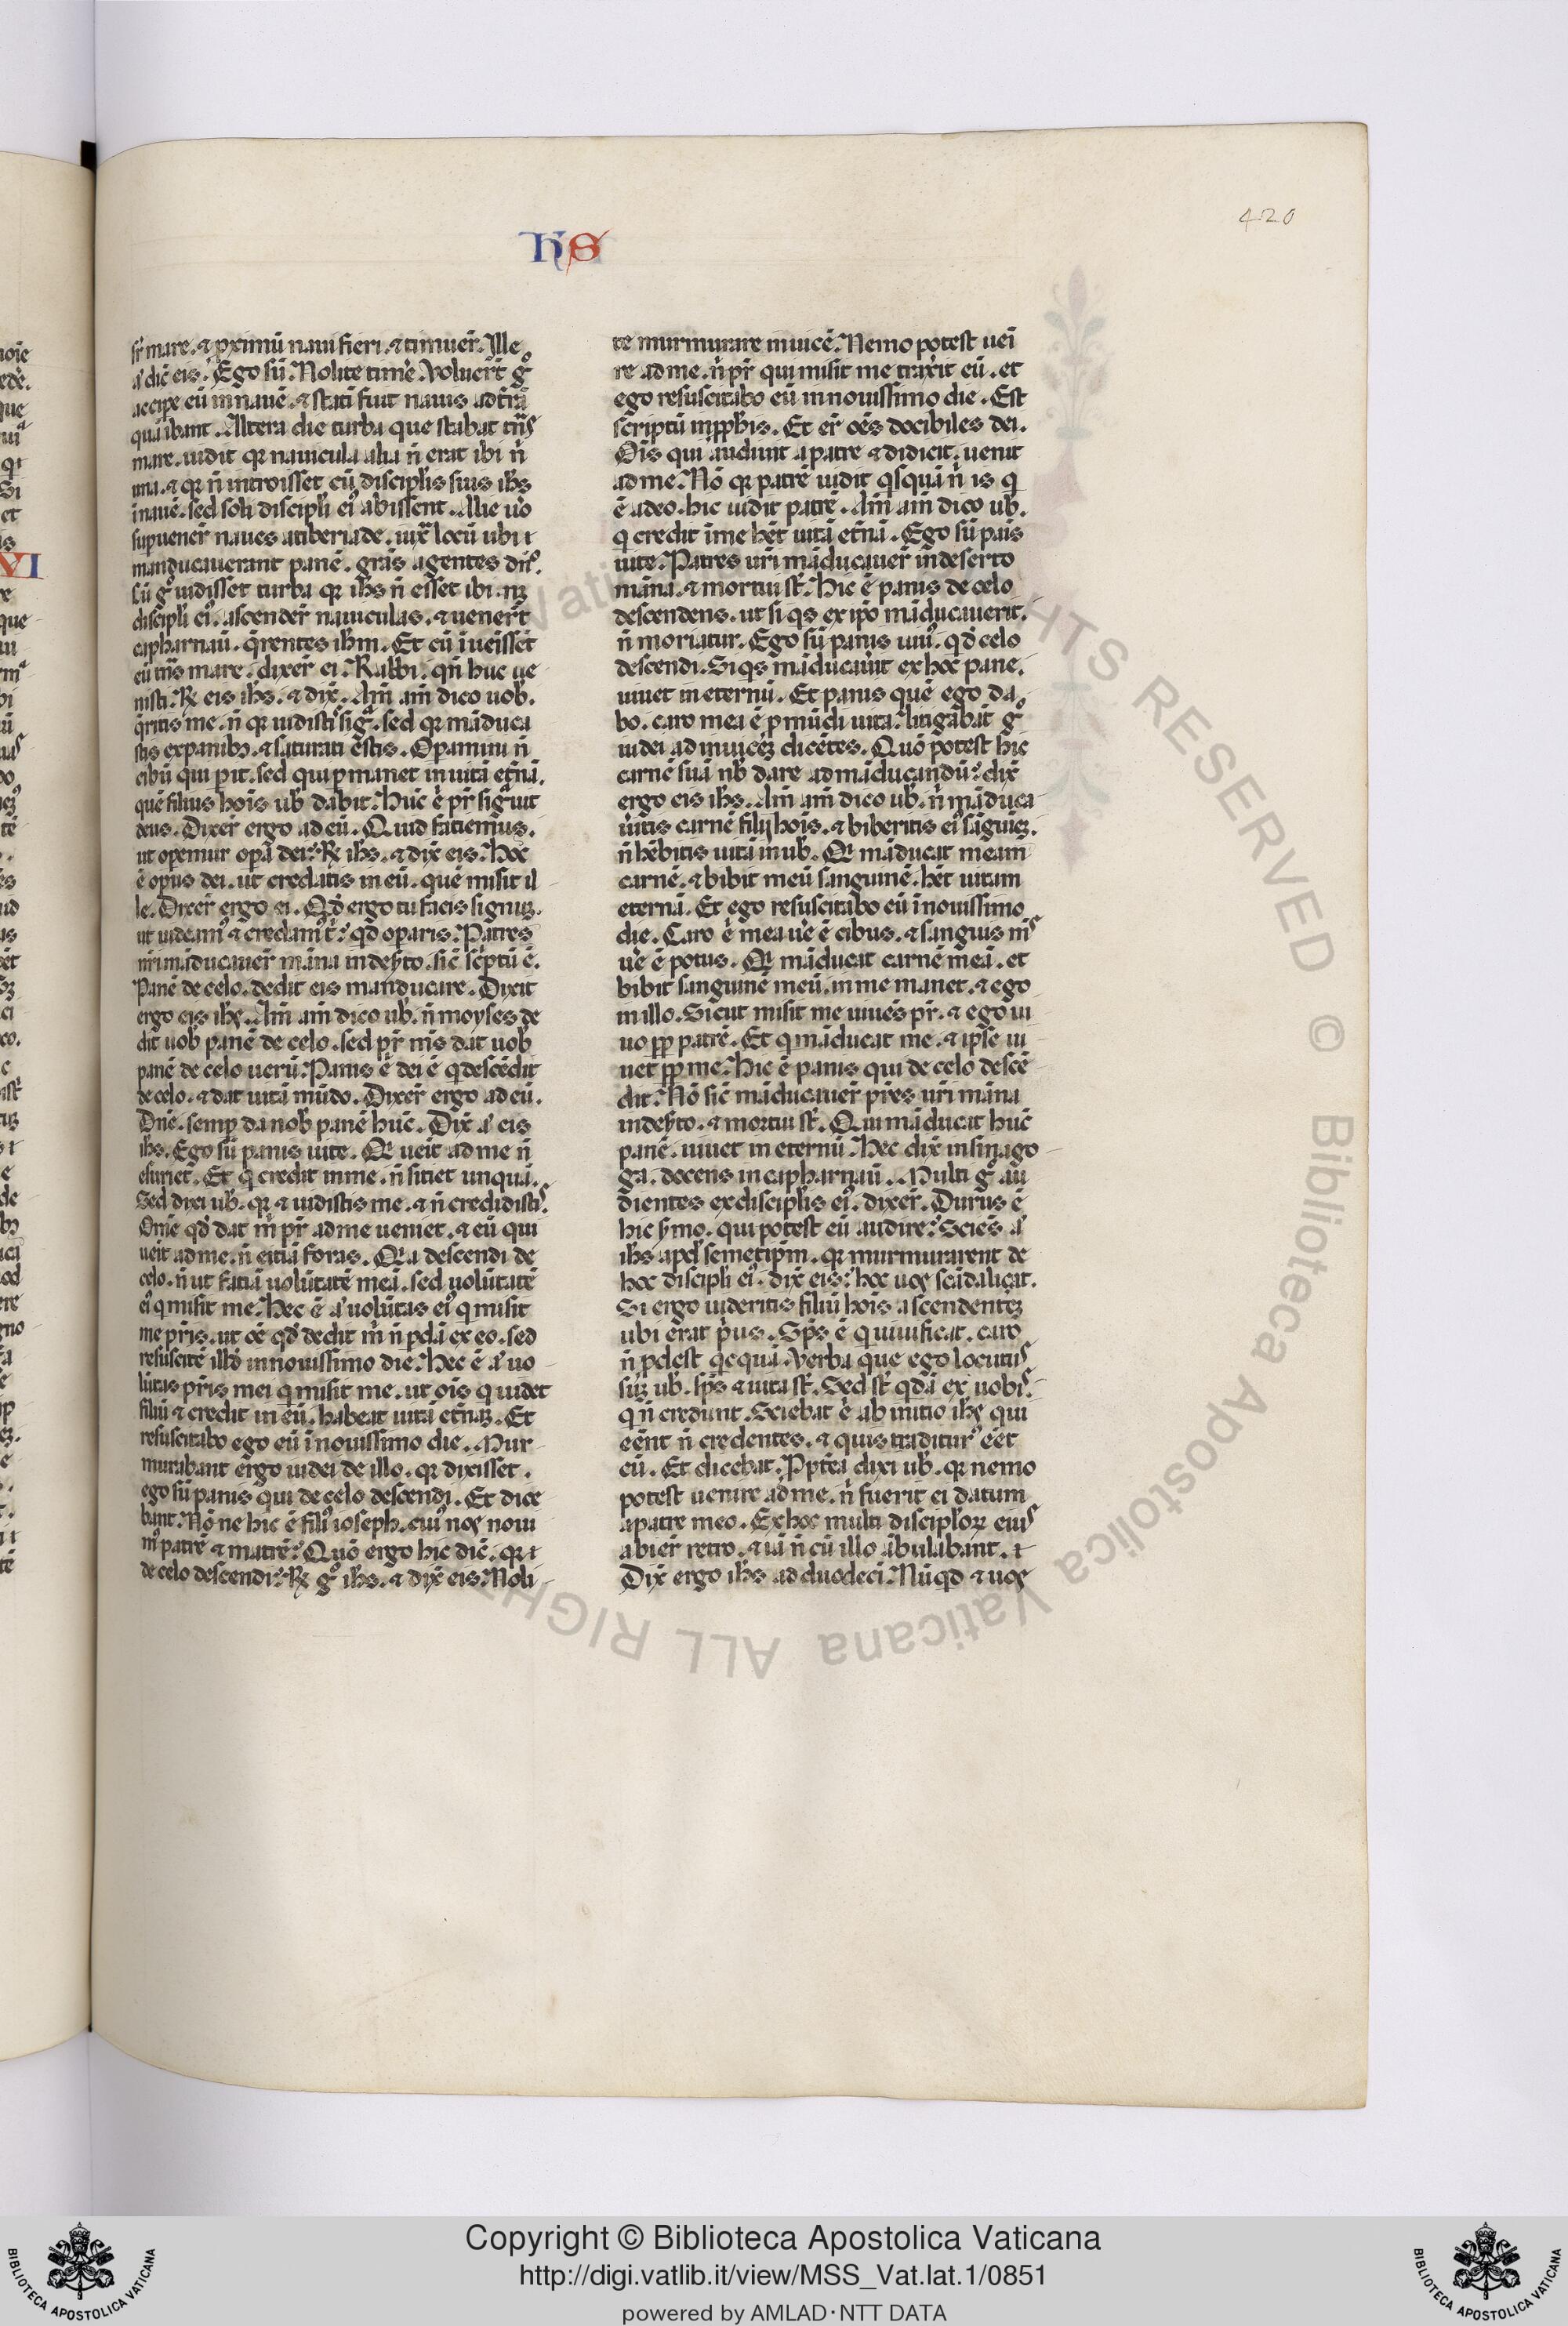 420
hS
sr̄ mare. ⁊ ꝓximū naui fieri. ⁊ timuer̄. Ille
aͥ dic̄ eis. Ego sū. Nolite time͛. Voluer̄t gͦ
accipe͛ eū in nauē. ⁊ stati fuit nauis ad t̄rā
quā ibant. Altera die turba que stabat tn̄s
mare. uidit qꝛ nauicula alia n̄ erat ibi nͥ
una. ⁊ qꝛ n̄ introisset cū discipl̄is suis ih̄s
ī nauē. sed soli discipl̄i eiꝰ abissent. Alie uͦo
supuener̄ naues a tiberiade. iux̄ locū ubi
manducauerant panē. gr̄as agentes dn̄o.
Cū gͦ uidisset turba qꝛ ih̄s n̄ esset ibi. nqꝫ
discipl̄i eiꝰ. ascender̄ nauiculas. ⁊ uener̄t
capharnaū. q̄rentes ih̄m. Et cū īueissēt
eū tn̄s mare. dixer̄ ei. Rabbi. qn̄ huc ue
nisti. R̄ eis ih̄s. ⁊ dix̄. Am̄ am̄ dico uob̄.
q̄ritis me. n̄ qꝛ uidistis sigͣ. sed qꝛ māduca
stis ex panibꝫ. ⁊ saturati estis. Opamini n̄
cibū qui pit. sed qui pmanet in uitā et̄nā.
quē filius hōis ub̄ dabit. Hūc .e. pr̄ sigͣuit
deus. Dixer̄ ergo ad eū. Quid faciemus.
ut opemur opā dei. R̄ ih̄s. ⁊ dix̄ eis. Hoc
ē opus dei. ut credatis in eū. quē misit il
le. Dixer̄ ergo ei. Qd̄ ergo tu facis signuꝫ.
ut uideamꝰ ⁊ credamꝰ t̄. qd̄ oparis. Patres
nr̄i māducauer̄ māna in deẜto. sic̄ sc̄ptū ē.
Panē de celo. dedit eis manducare. Dixit
ergo eis ih̄s. Am̄ am̄ dico ub̄. n̄ moyses de
dit uob̄ panē de celo. sed pr̄ ms̄ dat uob̄
panē de celo uerū. Panis .e. dei ē q descēdit
de celo. ⁊ dat uitā mūdo. Dixer̄ ergo ad eū.
Dn̄e. semp da nob̄ panē hūc. Dix̄ aͥ eis
ih̄s. Ego sū panis uite. Qi ueit ad me n̄
esuriet. Et q credit in me. n̄ sitiet unquā.
Sed dixi ub̄. qꝛ ⁊ uidistis me. ⁊ n̄ credidistis.
Om̄e qd̄ dat m̄ pr̄ ad me ueniet. ⁊ eū qui
ueit ad me. n̄ eiciā foras. Qꝛa descendi de
celo. n̄ ut faciā uolūtatē meā. sed uolūtatē
eiꝰ q misit me. Hec ē aͥ uolūtas eiꝰ q misit
me pr̄is. ut oē qd̄ dedit m̄ n̄ pdā ex eo. sed
resuscitē illd̄ in nouissimo die. Hec ē aͥ uo
lūtas pr̄is mei q misit me. ut ois q uidet
filiū ⁊ credit in eū. habeat uitā et̄naꝫ. Et
resuscitabo ego eū ī nouissimo die. Mur
murabant ergo iudei de illo. qꝛ dixisset.
ego sū panis qui de celo descendi. Et dice
bant. Nō ne hic ē filiꝰ ioseph. cuiꝰ nos noui
mꝰ patrē ⁊ matrē. Quō ergo hic dic̄. qꝛ
de celo descendi. R̄ gͦ ih̄s. ⁊ dix̄ eis. Noli
te murmurare inuicē. Nemo potest uei
re ad me. nͥ pr̄ qui misit me trax̄it eū. et
ego resuscitabo eū in nouissimo die. Est
scriptū in pph̄is. Et er̄ oēs docibiles dei.
Ois qui audiuit a patre ⁊ didicit. uenit
ad me. Nō qꝛ patrē uidit qsquā nͥ is q
ē a deo. hic uidit patrē. Am̄ am̄ dico ub̄.
q credit ī me h̄et uitā et̄nā. Ego sū pais
uite. Patres ur̄i māducauer̄ in deserto
māna. ⁊ mortui st̄. Hic ē panis de celo
descendens. ut si qs ex ip̄o māducauerit.
n̄ moriatur. Ego sū panis uiuꝰ. qd̄ celo
descendi. Si qs māducau͛it ex hoc pane.
uiuet in eternū. Et panis quē ego da
bo. caro mea ē p mūdi uita. litigabāt gͦ
iudei ad inuicēꝫ dicētes. Quō potest hic
carnē suā nb̄ dare ad māducandū. dix̄
ergo eis ih̄s. Am̄ am̄ dico ub̄. nͥ māduca
u͛itis carnē filij hōis. ⁊ biberitis eiꝰ sāguieꝫ.
n̄ hēbitis uitā in ub̄. Qi māducat meam
carnē. ⁊ bibit meū sanguinē. h̄et uitam
eternā. Et ego resuscitabo eū ī nouissimo
die. Caro .e. mea ue͛ ē cibus. ⁊ sanguis ms̄
ue͛ ē potus. Qi māducat carnē meā. et
bibit sanguinē meū. in me manet. ⁊ ego
in illo. Sicut misit me uiuēs pr̄. ⁊ ego ui
uo pp patrē. Et q māducat me. ⁊ ipse ui
uet pp me. Hic ē panis qui de celo descē
dit. Nō sic̄ māducauer̄ pr̄es ur̄i māna
in deẜto. ⁊ mortui st̄. Qui māducat hūc
panē. uiuet in eternū. Hec dix̄ in sinago
ga. docens in capharnaū. Multi gͦ au
dientes ex discipl̄is eiꝰ. dixer̄. Durus ē
hic ẜmo. qui potest eū audire. Sciēs aͥ
ih̄s apd̄ semetip̄m. qꝛ murmurarent de
hoc discipl̄i eiꝰ. dix̄ eis. hoc uos scādalicat.
Si ergo uideritis filiū hōis ascendenteꝫ
ubi erat pͥus. Sp̄s ē q uiuificat. caro
n̄ pdest qcquā. Verba que ego locutus
suꝫ ub̄. sp̄s ⁊ uita st̄. Sed st̄ qdā ex uobis.
q n̄ credunt. Sciebat .e. ab initio ih̄s qui
eēnt n̄ credentes. ⁊ quis traditurꝰ eēt
eū. Et dicebat. Ppt̄ea dixi ub̄. qꝛ nemo
potest uenire ad me. nͥ fuerit ei datum
a patre meo. Ex hoc multi discipl̄oꝝ eius
abier̄ retro. ⁊ iā n̄ cū illo ābulabant.
Dix̄ ergo ih̄s ad duodeci. Nūqd ⁊ uos
Copyright © Biblioteca Apostolica Vaticana
http://digi.vatlib.it/view/MSS_Vat.lat.1/0851
powered by AMLAD·NTT DATA
BIBLIOTECA APOSTOLICA VATICANA
BIBLIOTECA APOSTOLICA VATICANA